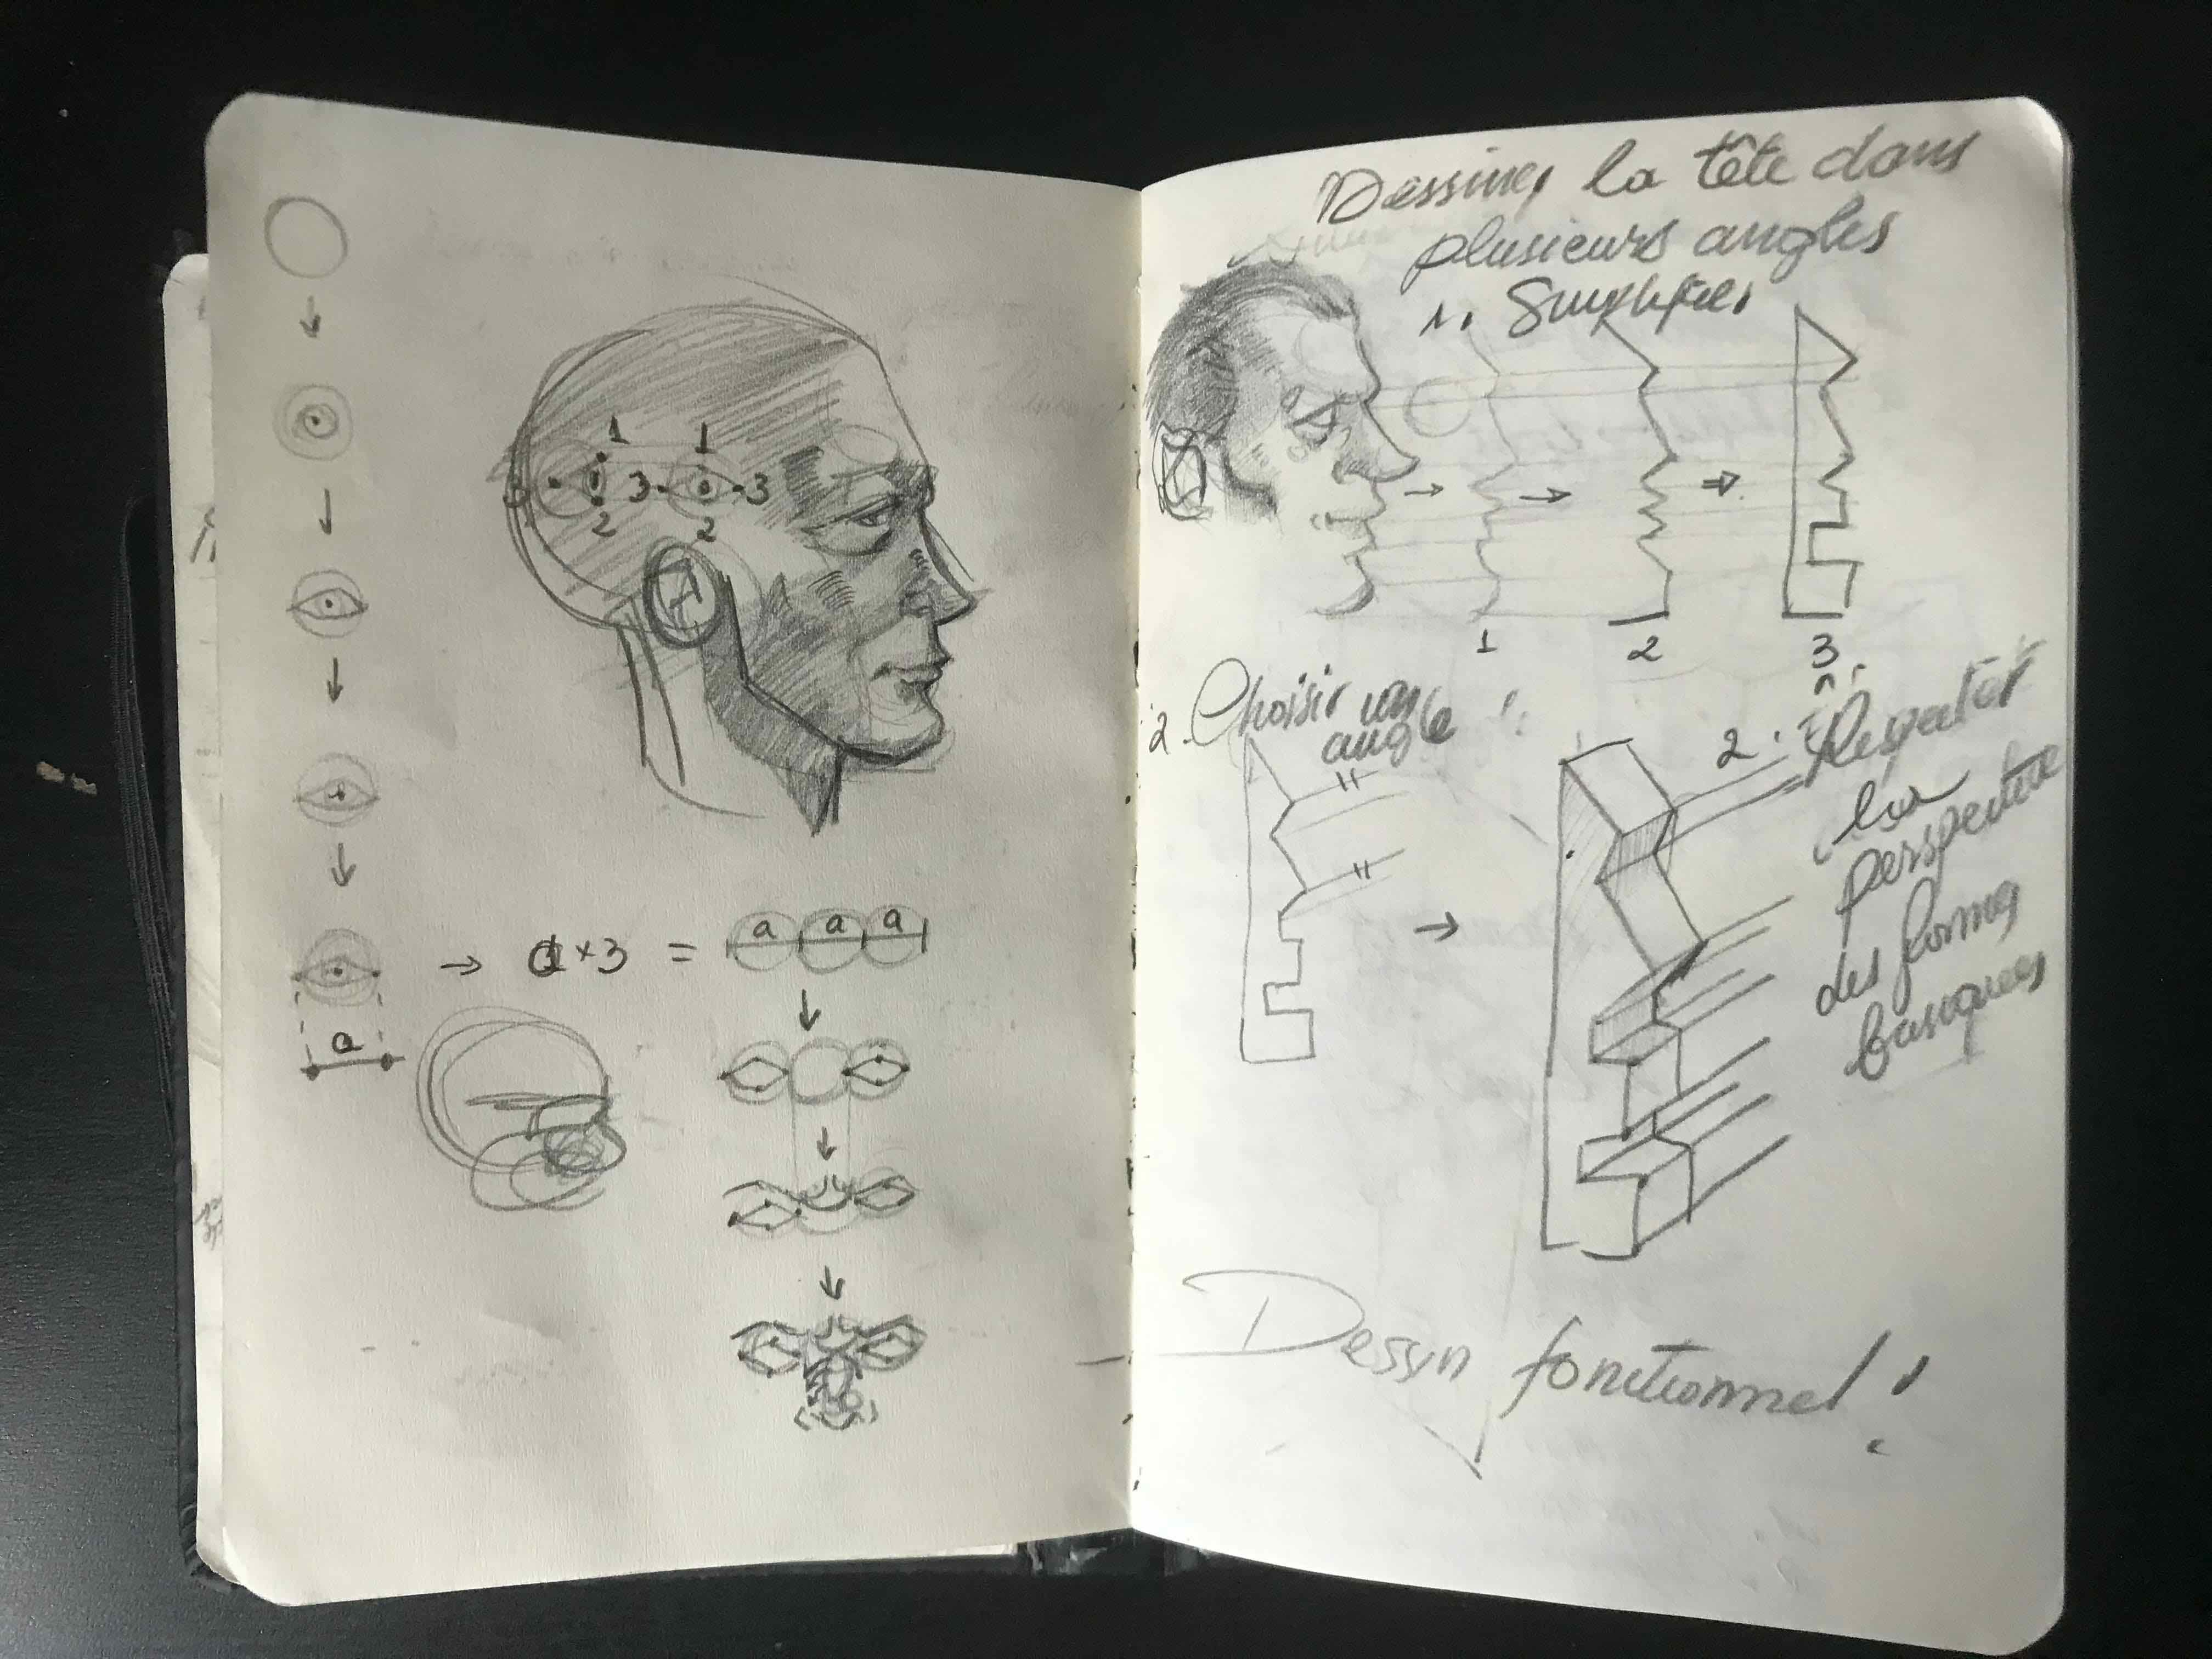 1 1
3 3
2 2
a × 3 = a a a
a
Dessiner la tête dans
plusieurs angles
1. Simplifier
1 2 3
2. Choisir un
angle
2. Respecter
la
perspective
des formes
basiques
Dessin fonctionnel !